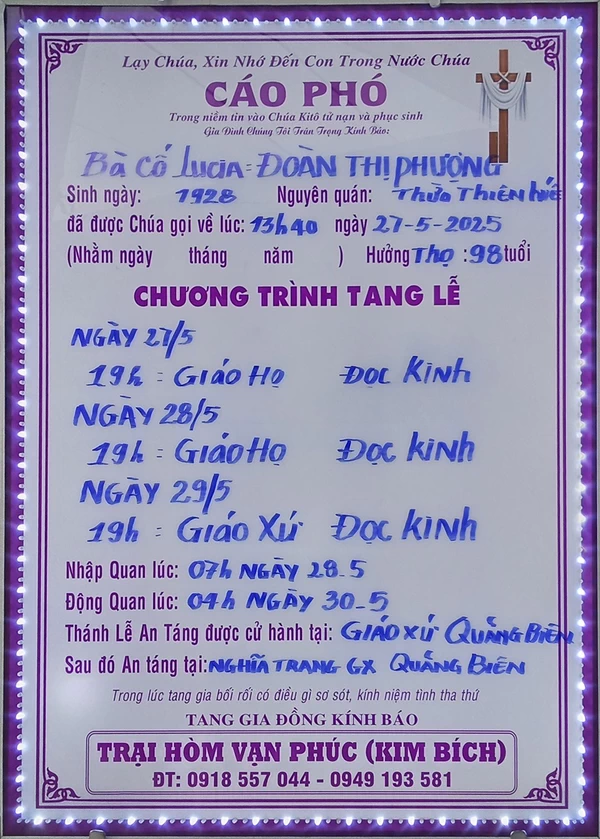 Lạy Chúa, Xin Nhớ Đến Con Trong Nước Chúa
CÁO PHÓ
Trong niềm tin vào Chúa Kitô tử nạn và phục sinh
Gia Đình Chúng Tôi Trân Trọng Kính Báo:
Bà Cố Lucia = ĐOÀN THỊ PHƯỢNG
Sinh ngày: 1928 Nguyên quán: THỪA THIÊN HUẾ
đã được Chúa gọi về lúc: 13h40 ngày 27-5-2025
(Nhằm ngày tháng năm ) Hưởng THỌ : 98 tuổi
CHƯƠNG TRÌNH TANG LỄ
NGÀY 27/5
19h = GIÁO HỌ ĐỌC KINH
NGÀY 28/5
19h = GIÁO HỌ ĐỌC KINH
NGÀY 29/5
19h = GIÁO XỨ ĐỌC KINH
Nhập Quan lúc: 07h NGÀY 28_5
Động Quan lúc: 04h NGÀY 30_5
Thánh Lễ An Táng được cử hành tại: GIÁO XỨ QUẢNG BIÊN
Sau đó An táng tại: NGHĨA TRANG GX QUẢNG BIÊN
Trong lúc tang gia bối rối có điều gì sơ sót, kính niệm tình tha thứ
TANG GIA ĐỒNG KÍNH BÁO
TRẠI HÒM VẠN PHÚC (KIM BÍCH)
ĐT: 0918 557 044 - 0949 193 581